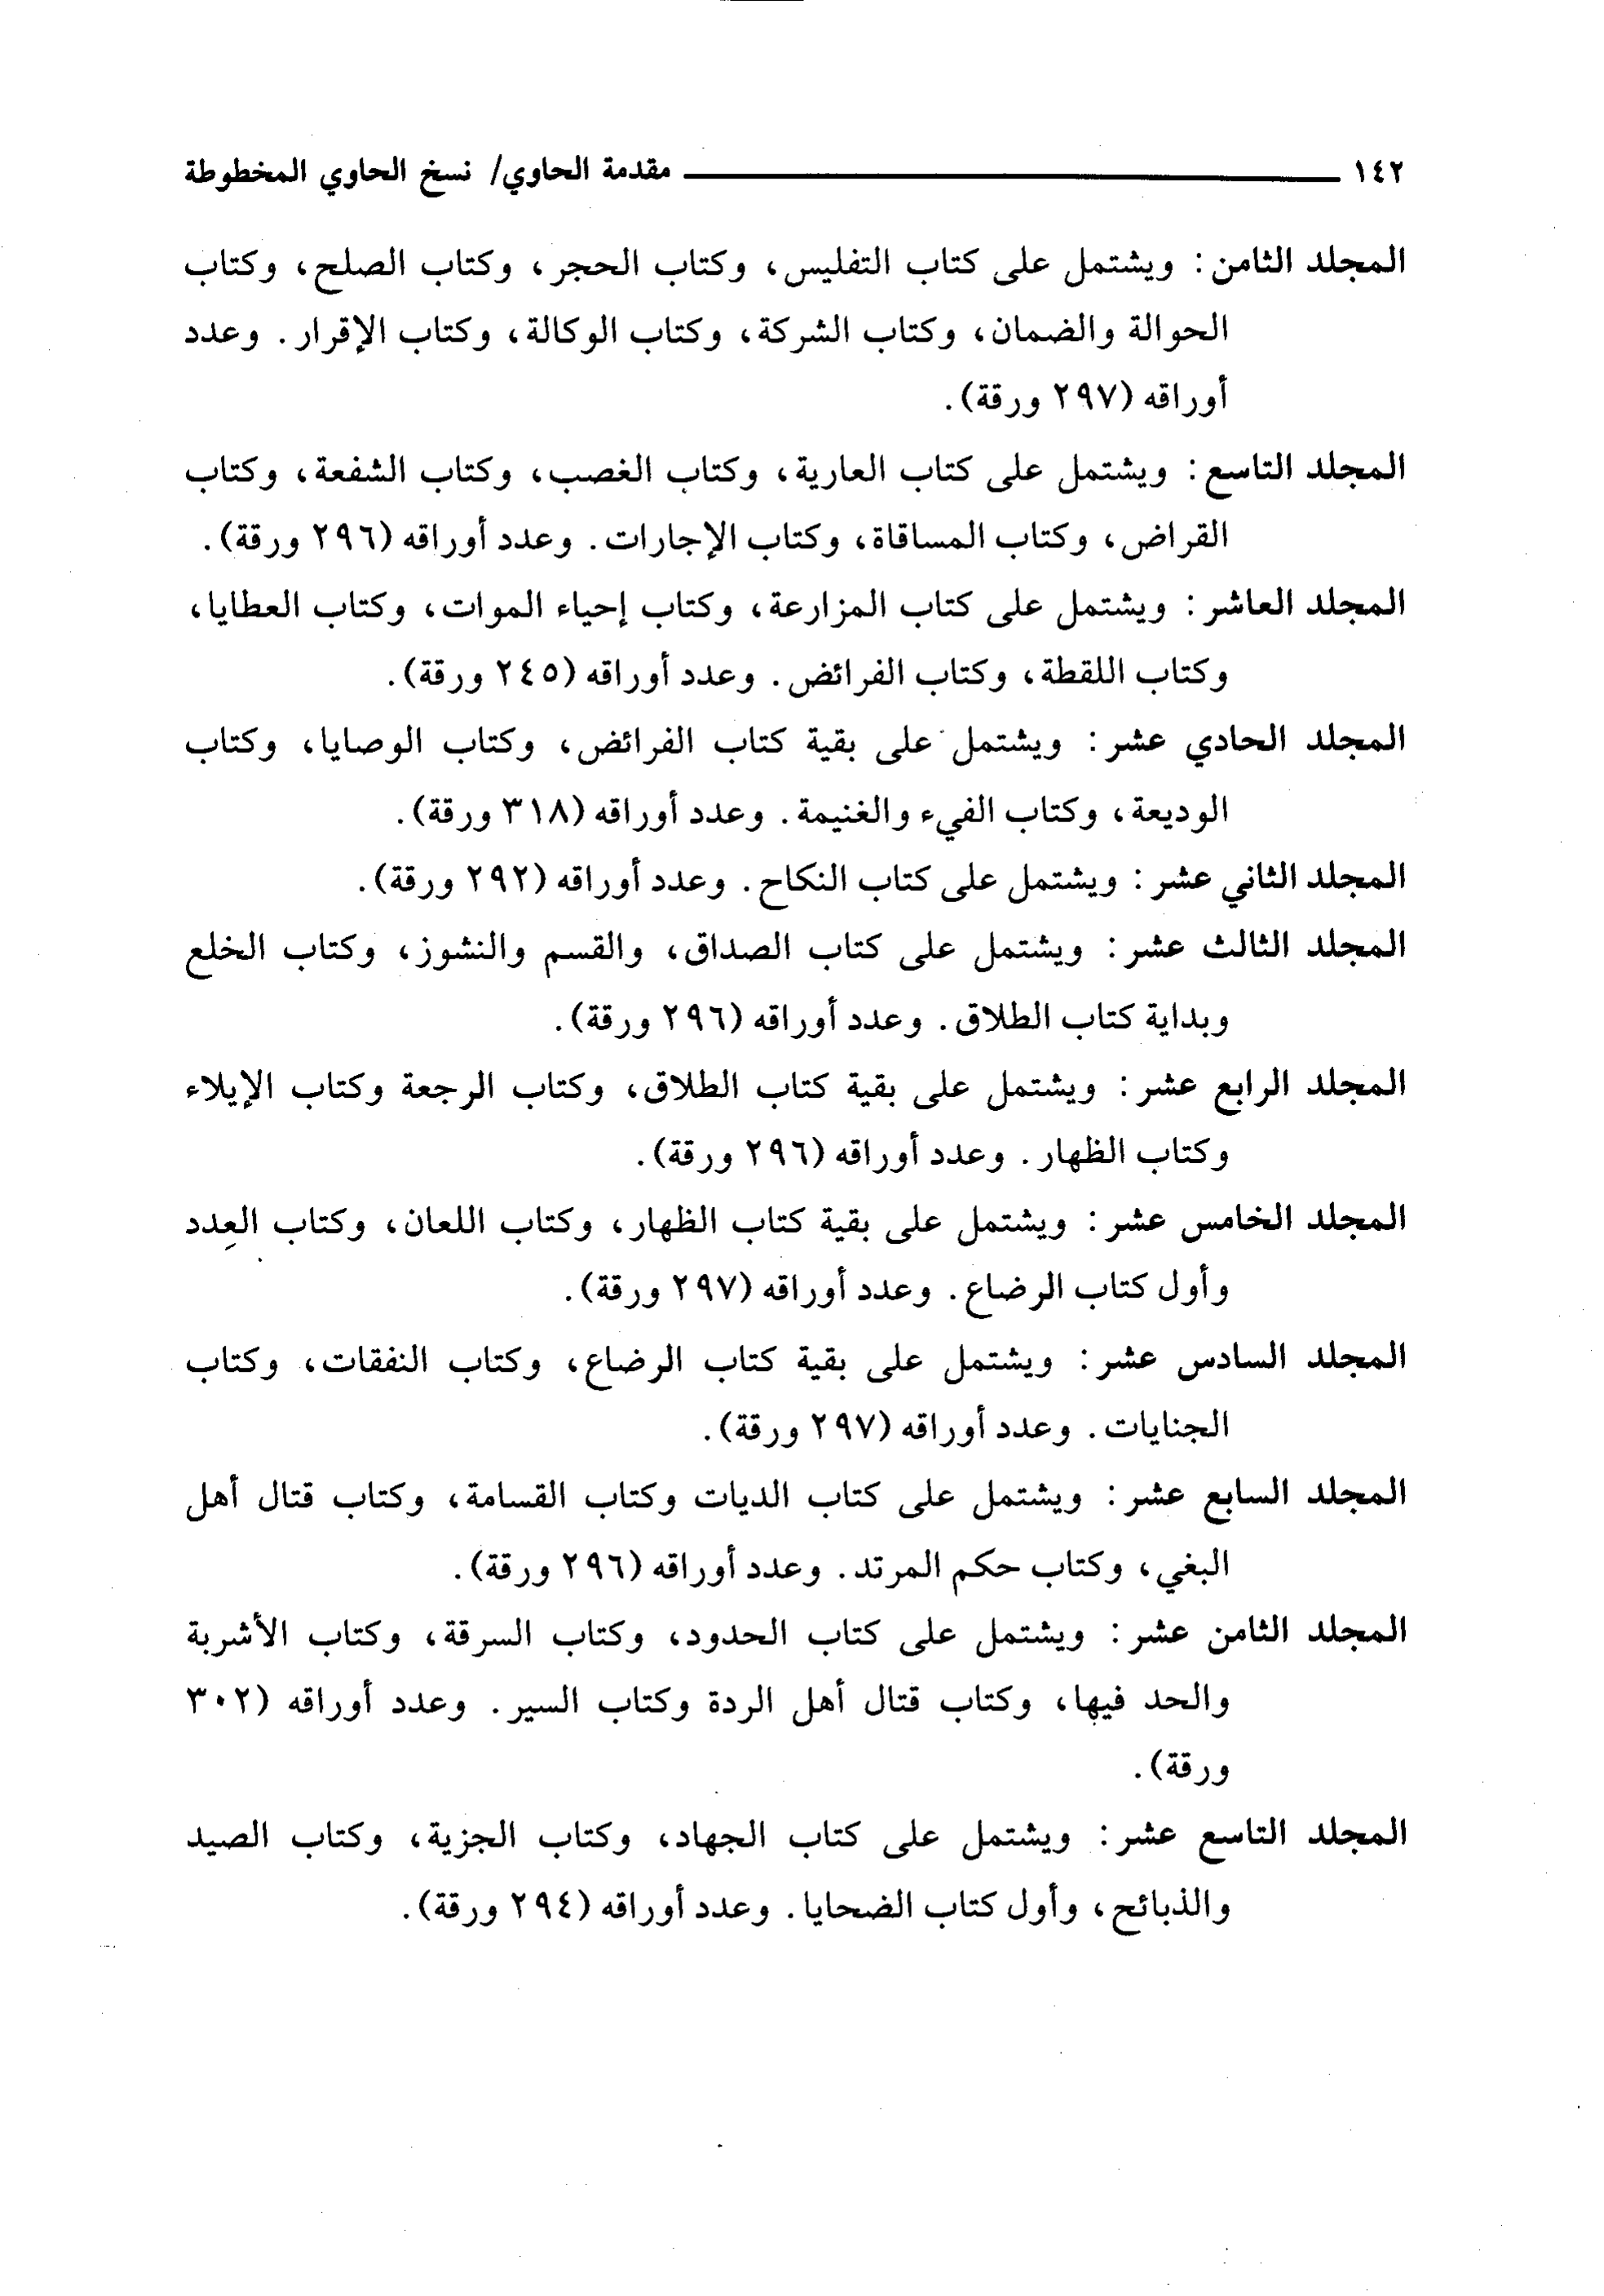 ١٤٢ مقدمة الحاوي/ نسخ الحاوي المخطوطة
المجلد الثامن: ويشتمل على كتاب التفليس، وكتاب الحجر، وكتاب الصلح، وكتاب
الحوالة والضمان، وكتاب الشركة، وكتاب الوكالة، وكتاب الإقرار. وعدد
أوراقه (٢٩٧ ورقة).
المجلد التاسع: ويشتمل على كتاب العارية، وكتاب الغصب، وكتاب الشفعة، وكتاب
القراض، وكتاب المساقاة، وكتاب الإجارات. وعدد أوراقه (٢٩٦ ورقة).
المجلد العاشر: ويشتمل على كتاب المزارعة، وكتاب إحياء الموات، وكتاب العطايا،
وكتاب اللقطة، وكتاب الفرائض. وعدد أوراقه (٢٤٥ ورقة).
المجلد الحادي عشر: ويشتمل على بقية كتاب الفرائض، وكتاب الوصايا، وكتاب
الوديعة، وكتاب الفيء والغنيمة. وعدد أوراقه (٣١٨ ورقة).
المجلد الثاني عشر: ويشتمل على كتاب النكاح. وعدد أوراقه (٢٩٢ ورقة).
المجلد الثالث عشر: ويشتمل على كتاب الصداق، والقسم والنشوز، وكتاب الخلع
وبداية كتاب الطلاق. وعدد أوراقه (٢٩٦ ورقة).
المجلد الرابع عشر: ويشتمل على بقية كتاب الطلاق، وكتاب الرجعة وكتاب الإيلاء
وكتاب الظهار. وعدد أوراقه (٢٩٦ ورقة).
المجلد الخامس عشر: ويشتمل على بقية كتاب الظهار، وكتاب اللعان، وكتاب العِدد
وأول كتاب الرضاع. وعدد أوراقه (٢٩٧ ورقة).
المجلد السادس عشر: ويشتمل على بقية كتاب الرضاع، وكتاب النفقات، وكتاب
الجنايات. وعدد أوراقه (٢٩٧ ورقة).
المجلد السابع عشر: ويشتمل على كتاب الديات وكتاب القسامة، وكتاب قتال أهل
البغي، وكتاب حكم المرتد. وعدد أوراقه (٢٩٦ ورقة).
المجلد الثامن عشر: ويشتمل على كتاب الحدود، وكتاب السرقة، وكتاب الأشربة
والحد فيها، وكتاب قتال أهل الردة وكتاب السير. وعدد أوراقه (٣٠٢
ورقة).
المجلد التاسع عشر: ويشتمل على كتاب الجهاد، وكتاب الجزية، وكتاب الصيد
والذبائح، وأول كتاب الضحايا. وعدد أوراقه (٢٩٤ ورقة).